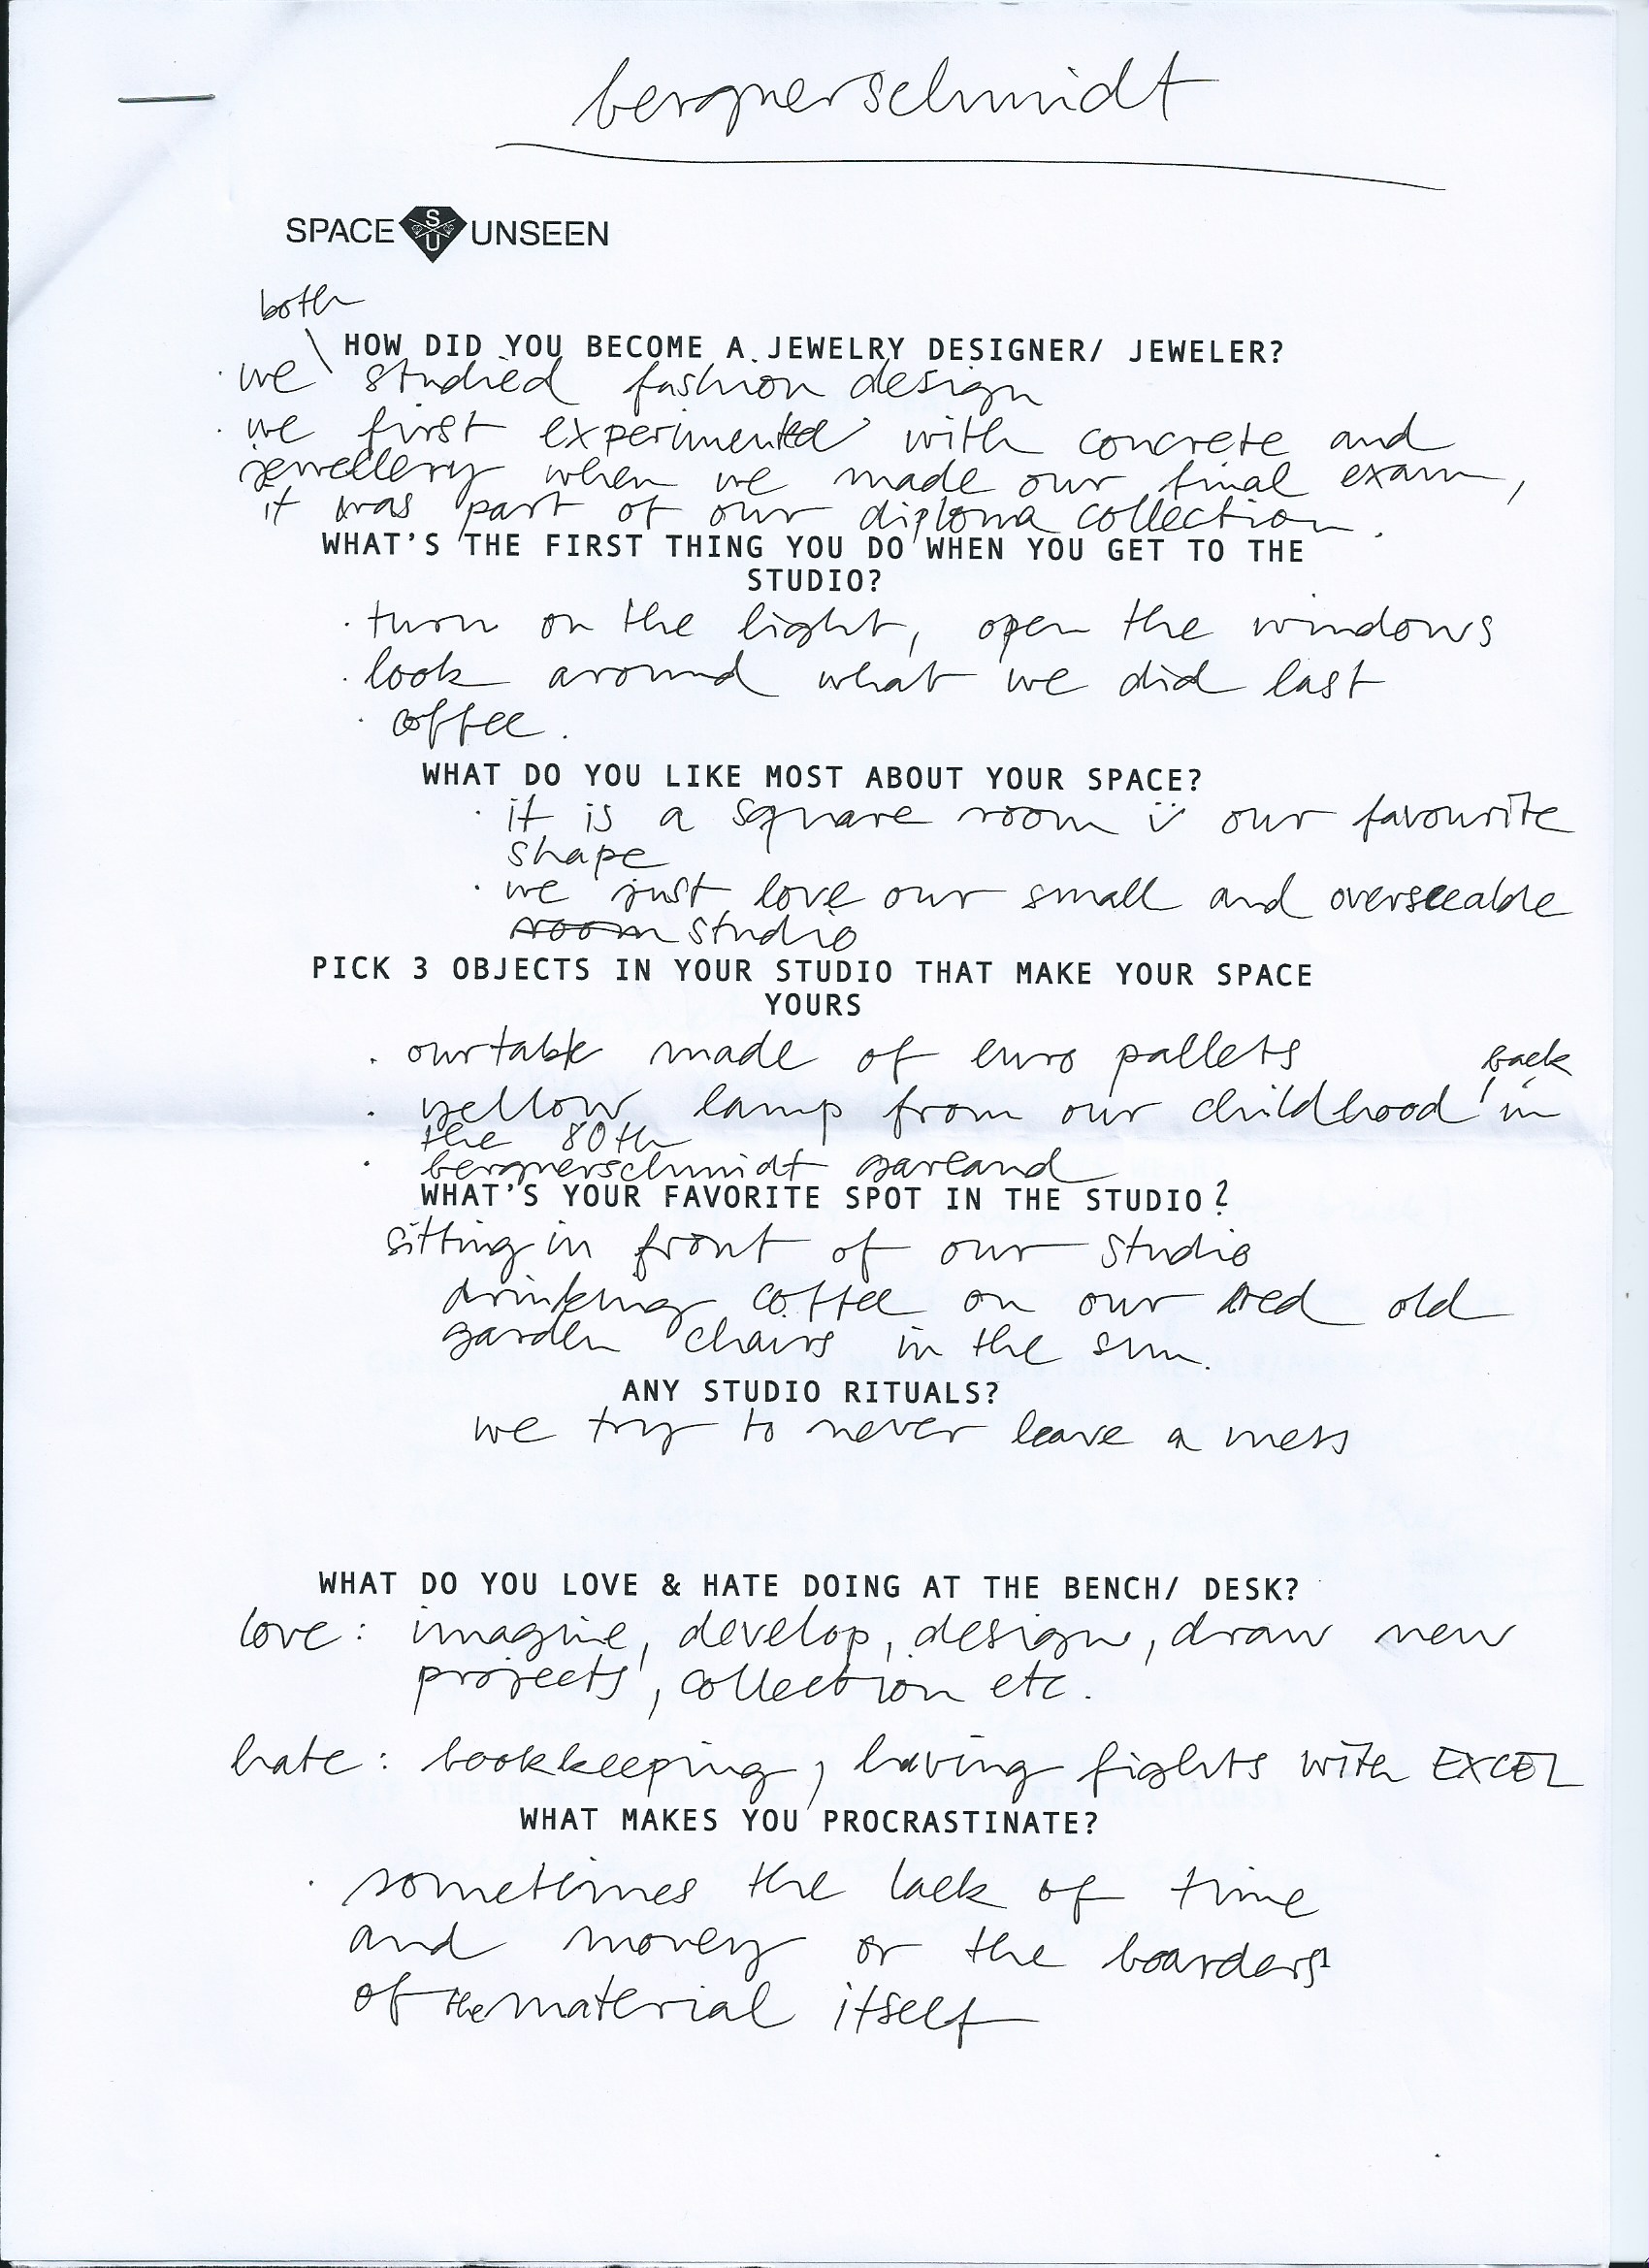 bergnerschmidt
SPACE SU UNSEEN
both
HOW DID YOU BECOME A JEWELRY DESIGNER/ JEWELER?
· we studied fashion design
· we first experimented with concrete and
jewellery when we made our final exam,
it was part of our diploma collection.
WHAT'S THE FIRST THING YOU DO WHEN YOU GET TO THE
STUDIO?
· turn on the light, open the windows
· look around what we did last
· coffee.
WHAT DO YOU LIKE MOST ABOUT YOUR SPACE?
· it is a square room ü our favourite
shape
· we just love our small and overseeable
room studio
PICK 3 OBJECTS IN YOUR STUDIO THAT MAKE YOUR SPACE
YOURS
· our table made of euro pallets
back
· yellow lamp from our childhood in
the 80th
· bergnerschmidt garland
WHAT'S YOUR FAVORITE SPOT IN THE STUDIO?
sitting in front of our studio
drinking coffee on our red old
garden chairs in the sun.
ANY STUDIO RITUALS?
we try to never leave a mess
WHAT DO YOU LOVE & HATE DOING AT THE BENCH/ DESK?
love: imagine, develop, design, draw new
projects, collection etc.
hate: bookkeeping, having fights with EXCEL
WHAT MAKES YOU PROCRASTINATE?
· sometimes the lack of time
and money or the boarders
of the material itself